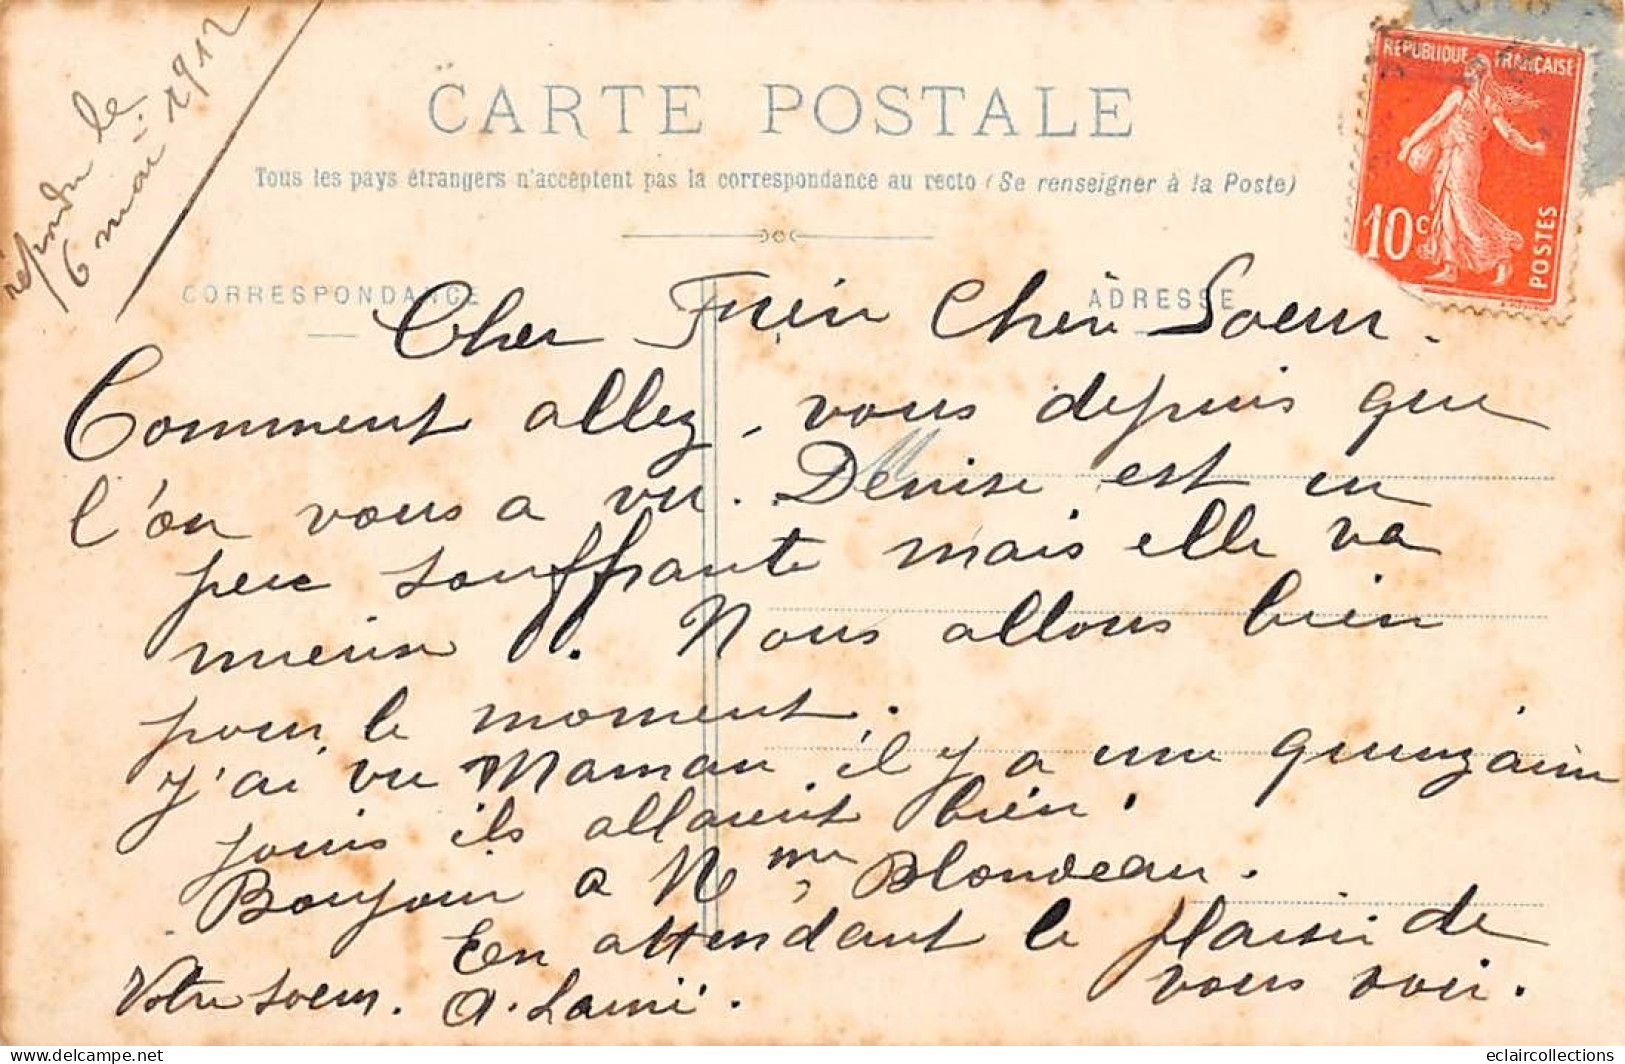 répondu le
6 mai 1912
CARTE POSTALE
Tous les pays étrangers n'acceptent pas la correspondance au recto (Se renseigner à la Poste)
RÉPUBLIQUE FRANÇAISE
10c
POSTES
CORRESPONDANCE
ADRESSE
Cher Frèr Chèr Soeur.
Comment allez-vous depuis que
l'on vous a vu. Denise est un
peu souffrante mais elle va
mieux. Nous allons bien
pour le moment.
j'ai vu Maman il y a une quinzaine
jours ils allaient bien.
Bonjour a Mme Blondeau.
En attendant le plaisir de
vous voir.
Votre soeur. A.
eclaircollections